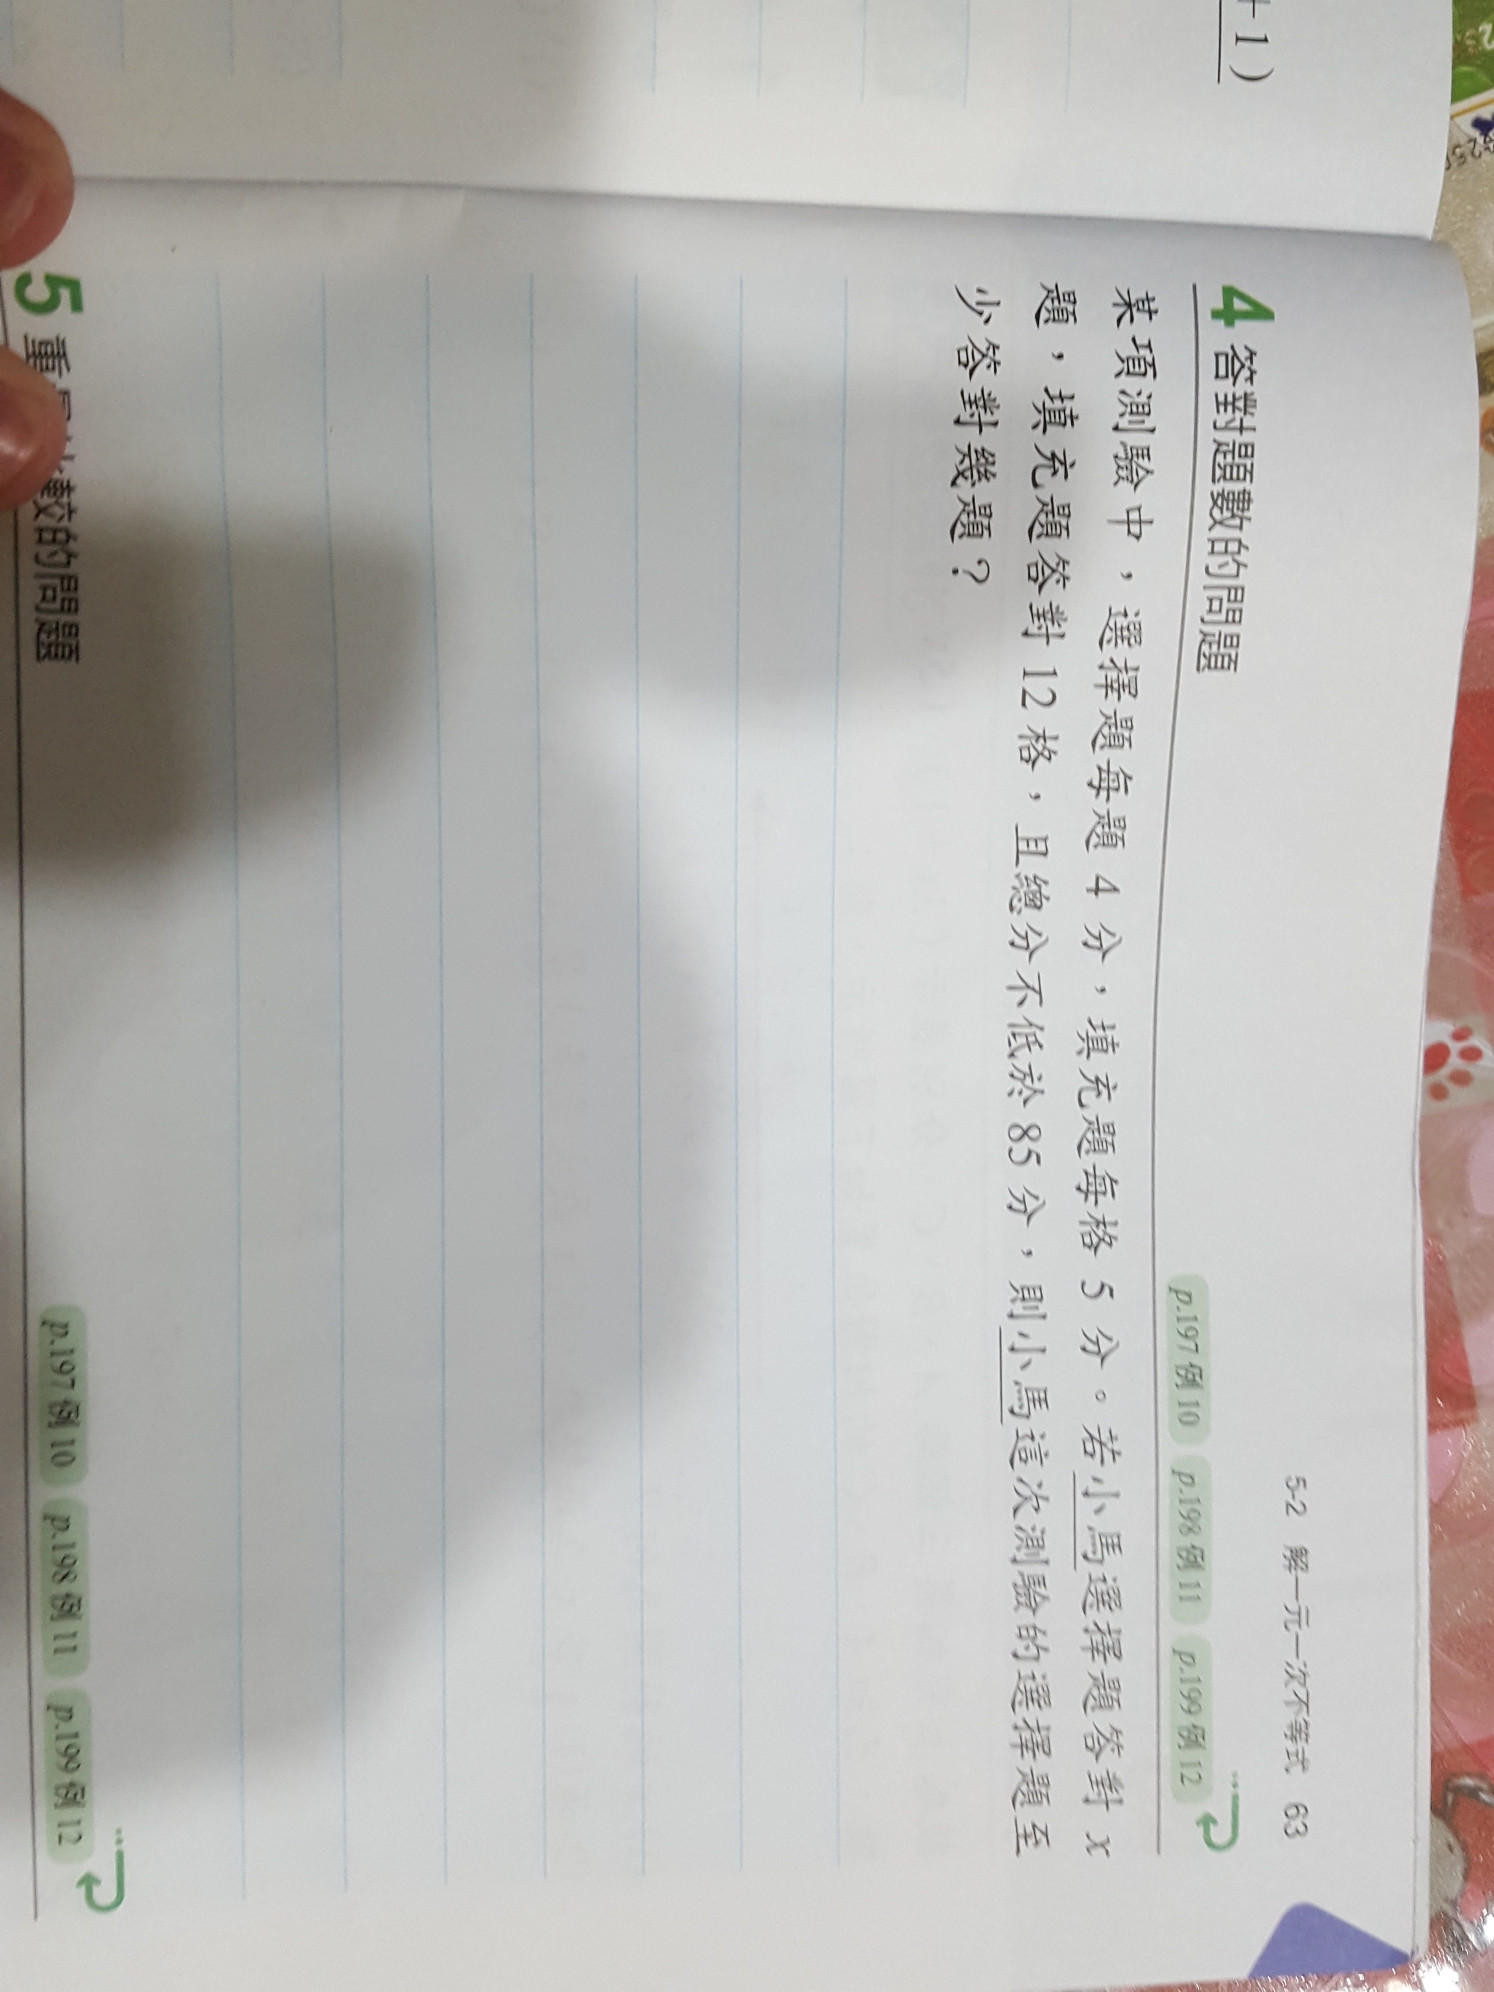 +1)
5-2 解一元一次不等式 63
4 答對題數的問題 p.197 例 10 p.198 例 11 p.199 例 12
某項測驗中，選擇題每題 4 分，填充題每格 5 分。若小馬選擇題答對 x
題，填充題答對 12 格，且總分不低於 85 分，則小馬這次測驗的選擇題至
少答對幾題？
5 重 較的問題 p.197 例 10 p.198 例 11 p.199 例 12